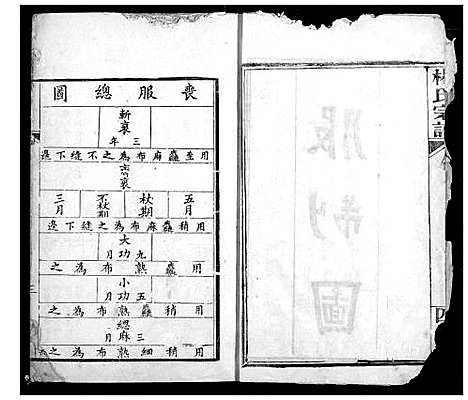 服制圖
氏宗譜
喪服總圖
斬衰
三年
用至麤麻布為之不縫下邊
齊衰
五月
杖期
不杖期
三月
用稍麤麻布為之縫下邊
大功
九月
用麤熟布為之
小功
五月
用稍麤熟布為之
緦麻
三月
用稍細熟布為之
三